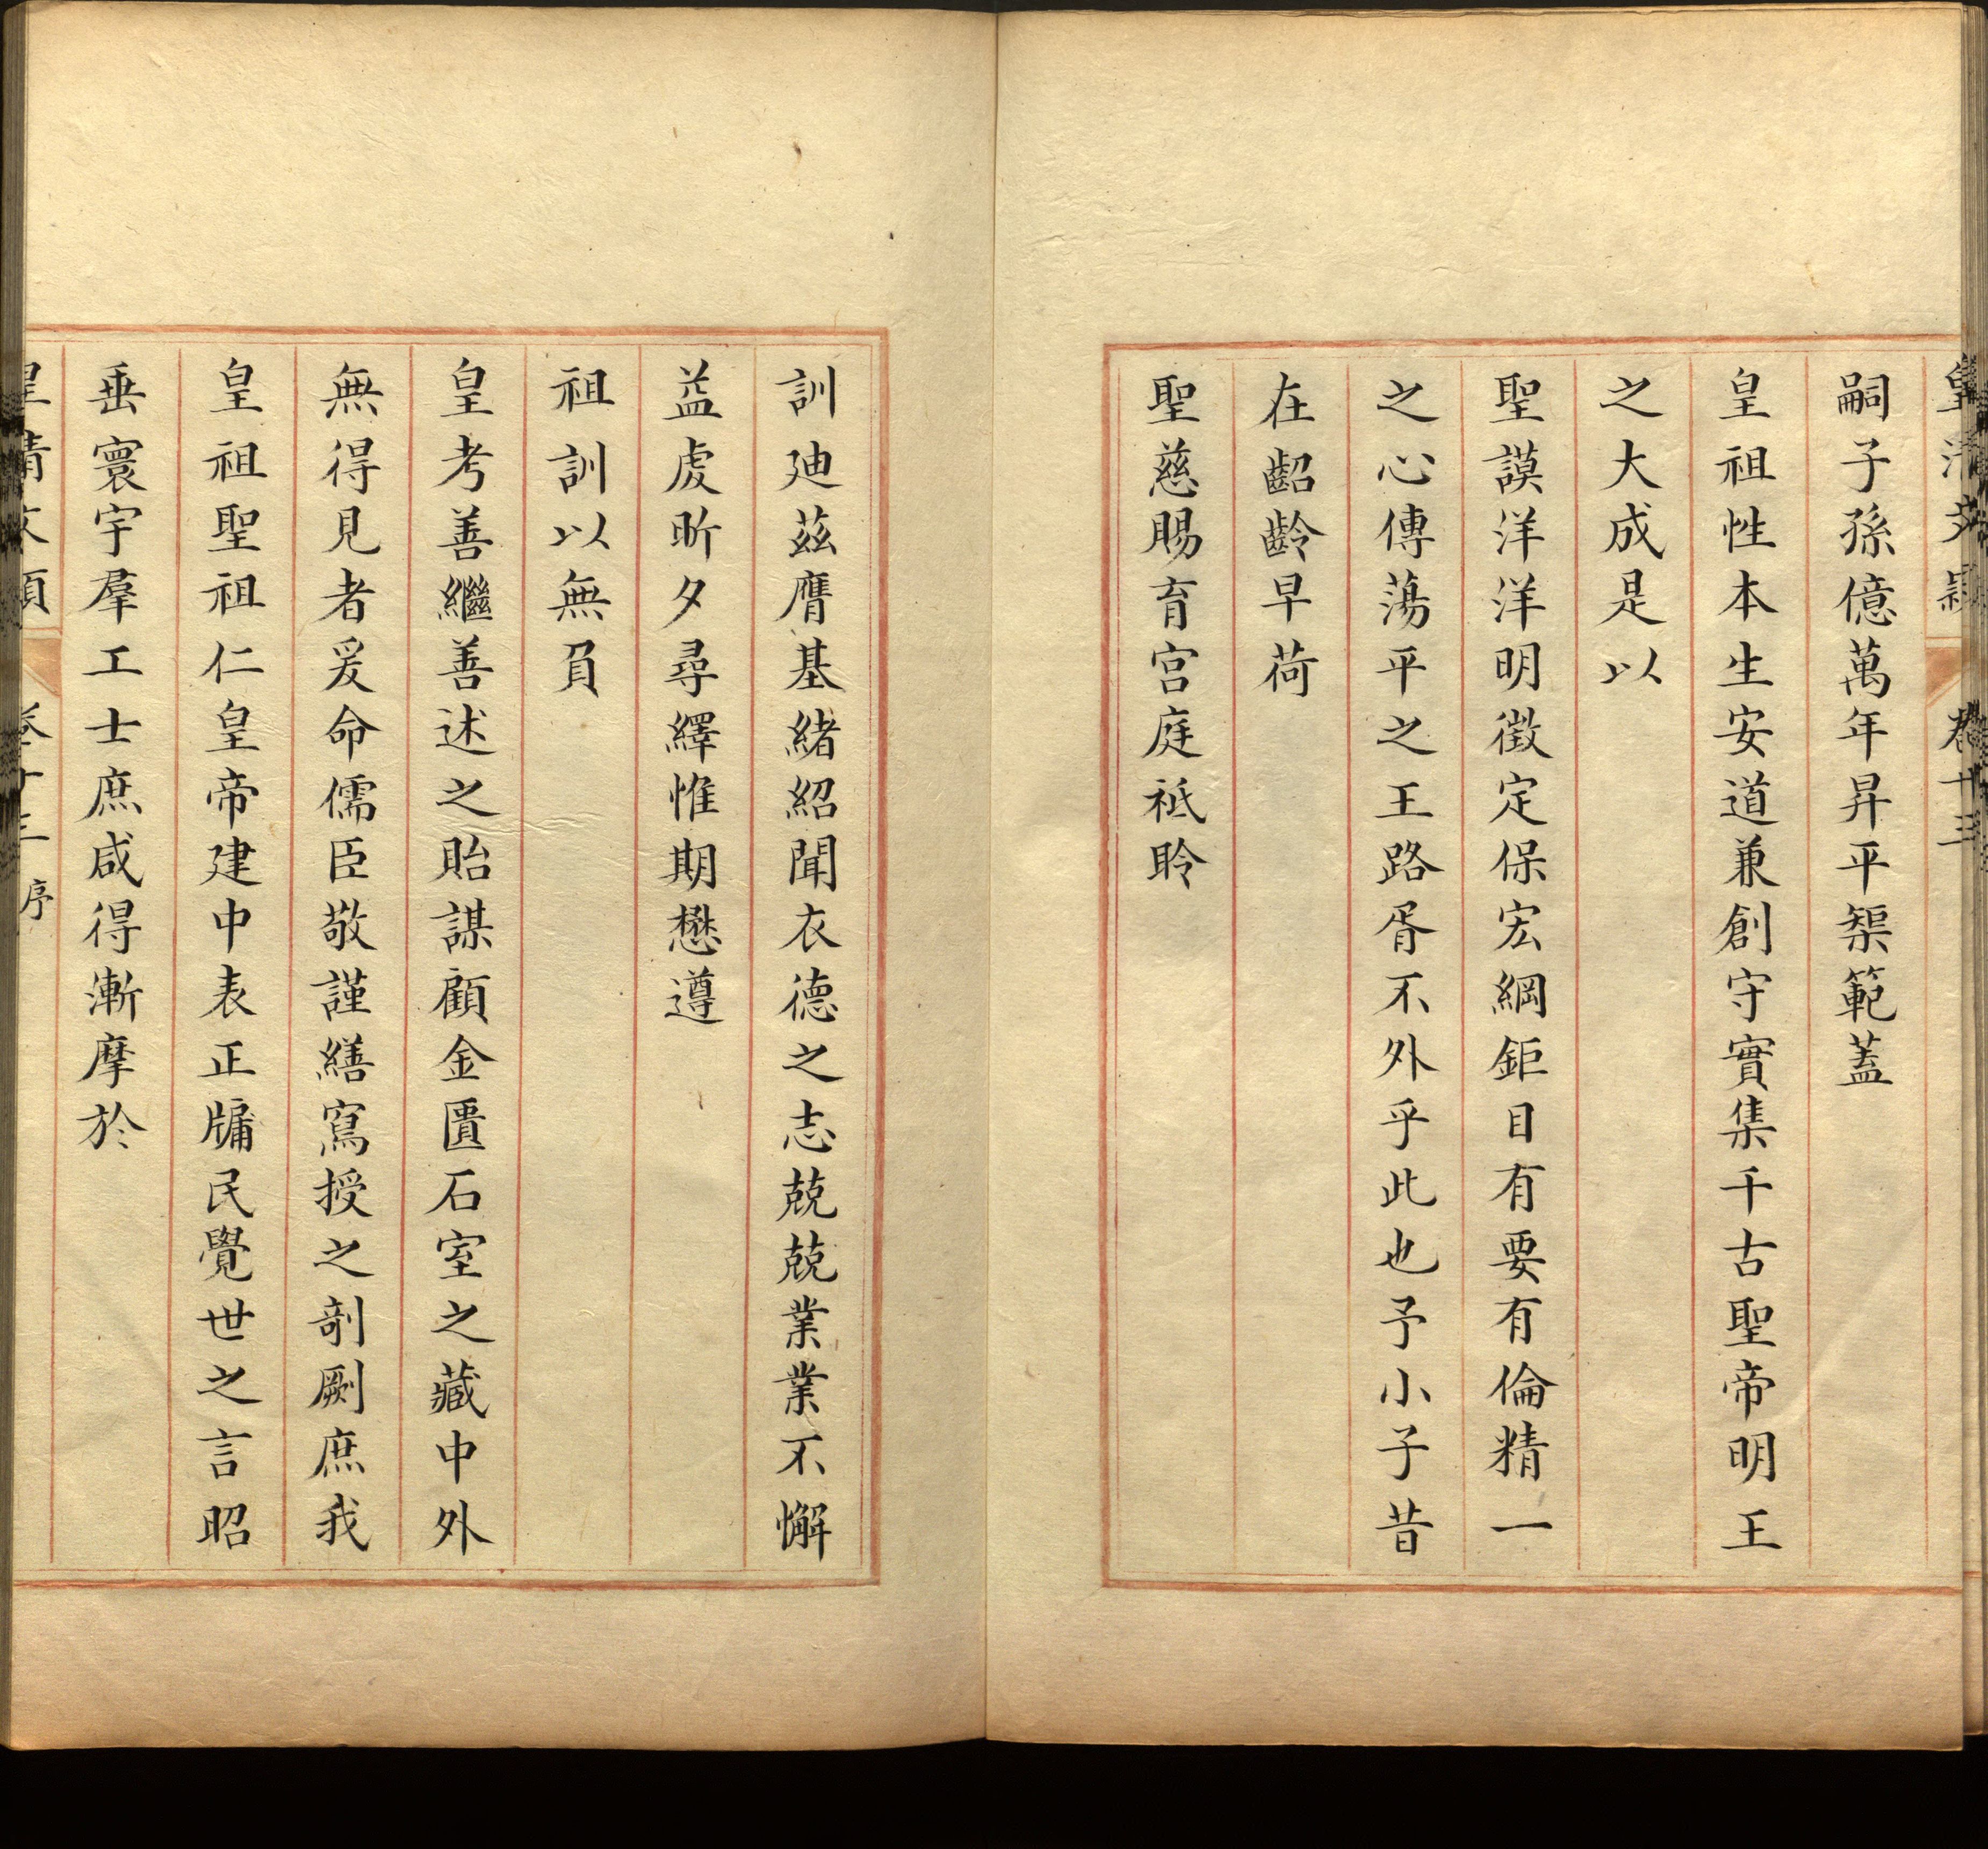 皇清文穎 卷十三
嗣子孫億萬年昇平榘範蓋
皇祖性本生安道兼創守實集千古聖帝明王
之大成是以
聖謨洋洋明徵定保宏綱鉅目有要有倫精一
之心傳蕩平之王路胥不外乎此也予小子昔
在齠齡早荷
聖慈賜育宮庭祗聆
訓廸茲膺基緒紹聞衣德之志兢兢業業不懈
益虔昕夕尋繹惟期懋遵
祖訓以無負
皇考善繼善述之貽謀顧金匱石室之藏中外
無得見者爰命儒臣敬謹繕寫授之剞劂庶我
皇祖聖祖仁皇帝建中表正牖民覺世之言昭
垂寰宇羣工士庶咸得漸摩於
皇清文穎 卷十三 序